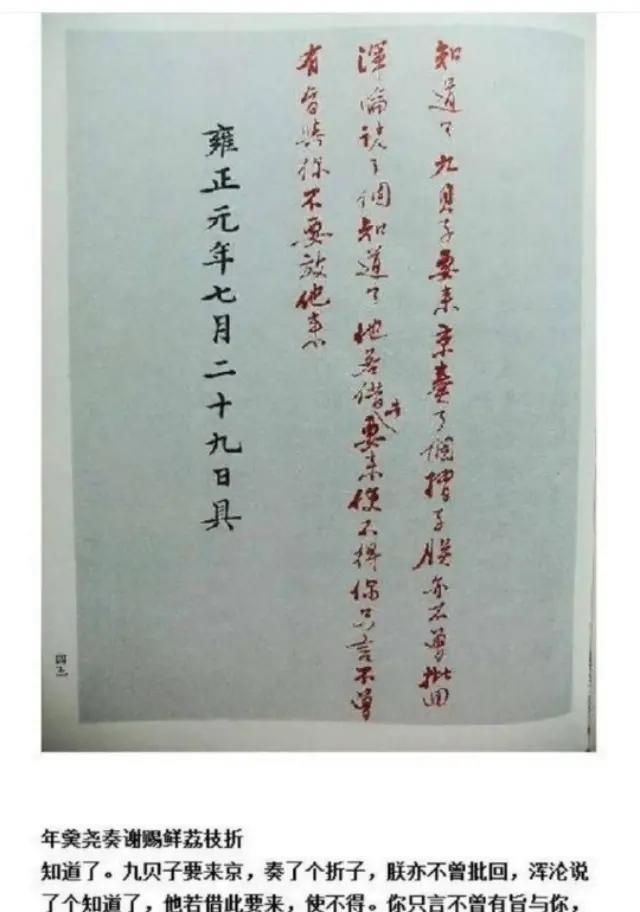 知道了九貝子要来京奏了個摺子朕亦不曾批回
渾淪说了個知道了他若借此要来使不得你只言不曾
有旨與你不要放他来
雍正元年七月二十九日具
四五
年羹尧奏谢赐鲜荔枝折
知道了。九贝子要来京，奏了个折子，朕亦不曾批回，浑沦说
了个知道了，他若借此要来，使不得。你只言不曾有旨与你，